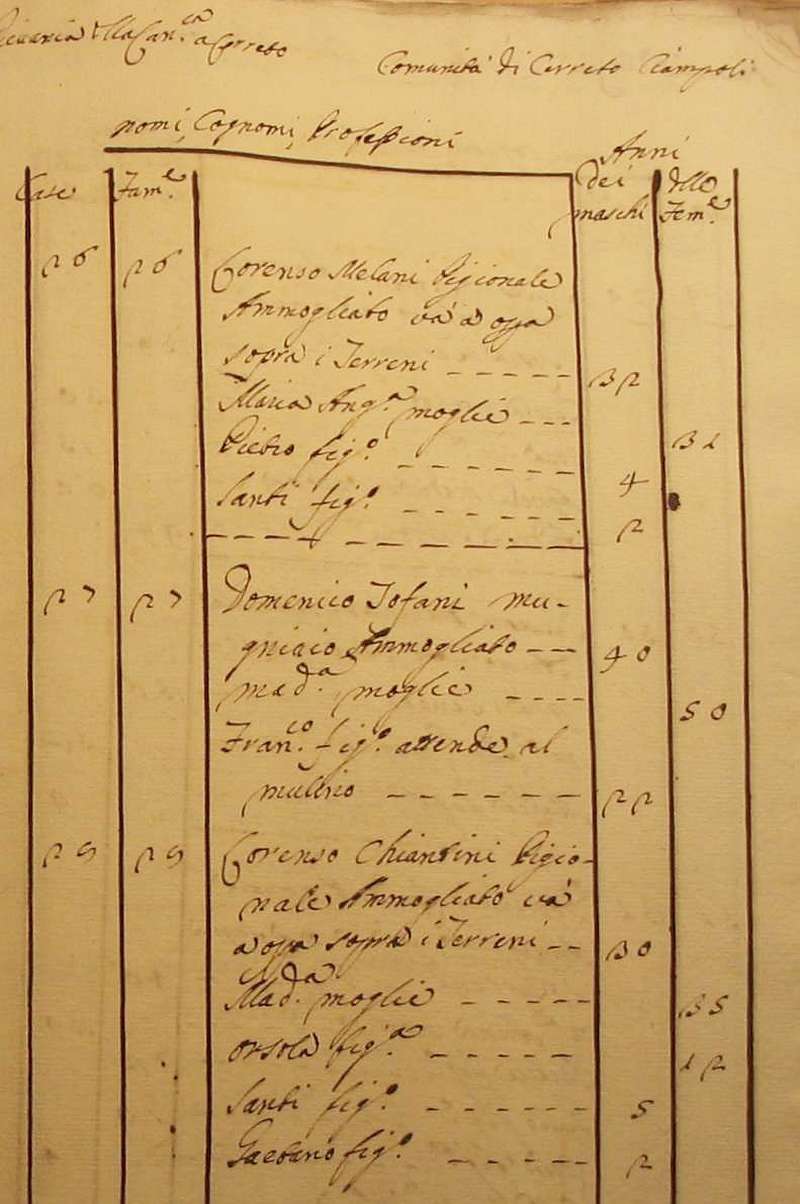 della Can.ca a Cerreto
Comunità di Cerreto Ciampoli
nomi, Cognomi, Professioni
Anni
Case Fam.e dei maschi delle Fem.e
26 26 Lorenso Melani Pigionale
Ammogliato và a opa
sopra i Terreni ----- 32
Maria Ang.a moglie --- 31
Pietro fig.o ------ 4
Santi fig.o ------ 2
27 27 Domenico Tofani mu-
gniaio Ammogliato --- 40
Mad.a moglie ---- 50
Fran.co fig.o attende al
mulino ------ 22
Lorenso Chiantini Pigio-
nale Ammogliato và
a opa sopra i Terreni -- 30
Mad.a moglie ----- 35
Orsola fig.a ----- 12
Santi fig.o ------ 5
Gaetano fig.o ----- 2